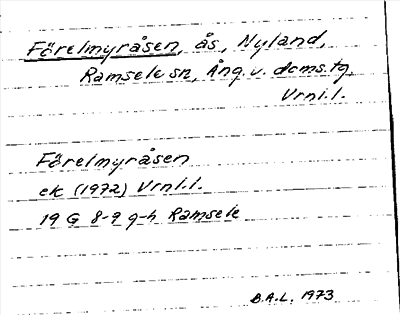 Förelmyråsen, ås, Nyland,
Ramsele sn, Ång. v. doms. tg,
Vrnl.l.
Förelmyråsen
ek (1972) Vrnl.l.
19 G 8-9 g-h Ramsele
B.A.L. 1973